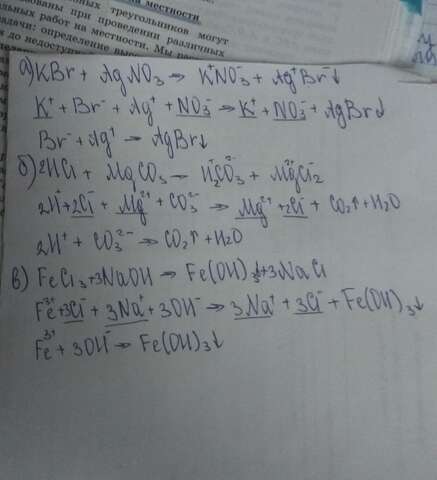 на местности
ованы при проведении различных
льных работ на местности.
адачи: определение
а) KBr + AgNO₃ → K⁺NO₃⁻ + Ag⁺Br⁻↓
K⁺ + Br⁻ + Ag⁺ + NO₃⁻ → K⁺ + NO₃⁻ + AgBr↓
Br⁻ + Ag⁺ → AgBr↓
б) 2HCl + MgCO₃ → H₂⁺CO₃²⁻ + Mg²⁺Cl₂⁻
2H⁺ + 2Cl⁻ + Mg²⁺ + CO₃²⁻ → Mg²⁺ + 2Cl⁻ + CO₂↑ + H₂O
2H⁺ + CO₃²⁻ → CO₂↑ + H₂O
в) FeCl₃ + 3NaOH → Fe(OH)₃↓ + 3NaCl
Fe³⁺ + 3Cl⁻ + 3Na⁺ + 3OH⁻ → 3Na⁺ + 3Cl⁻ + Fe(OH)₃↓
Fe³⁺ + 3OH⁻ → Fe(OH)₃↓